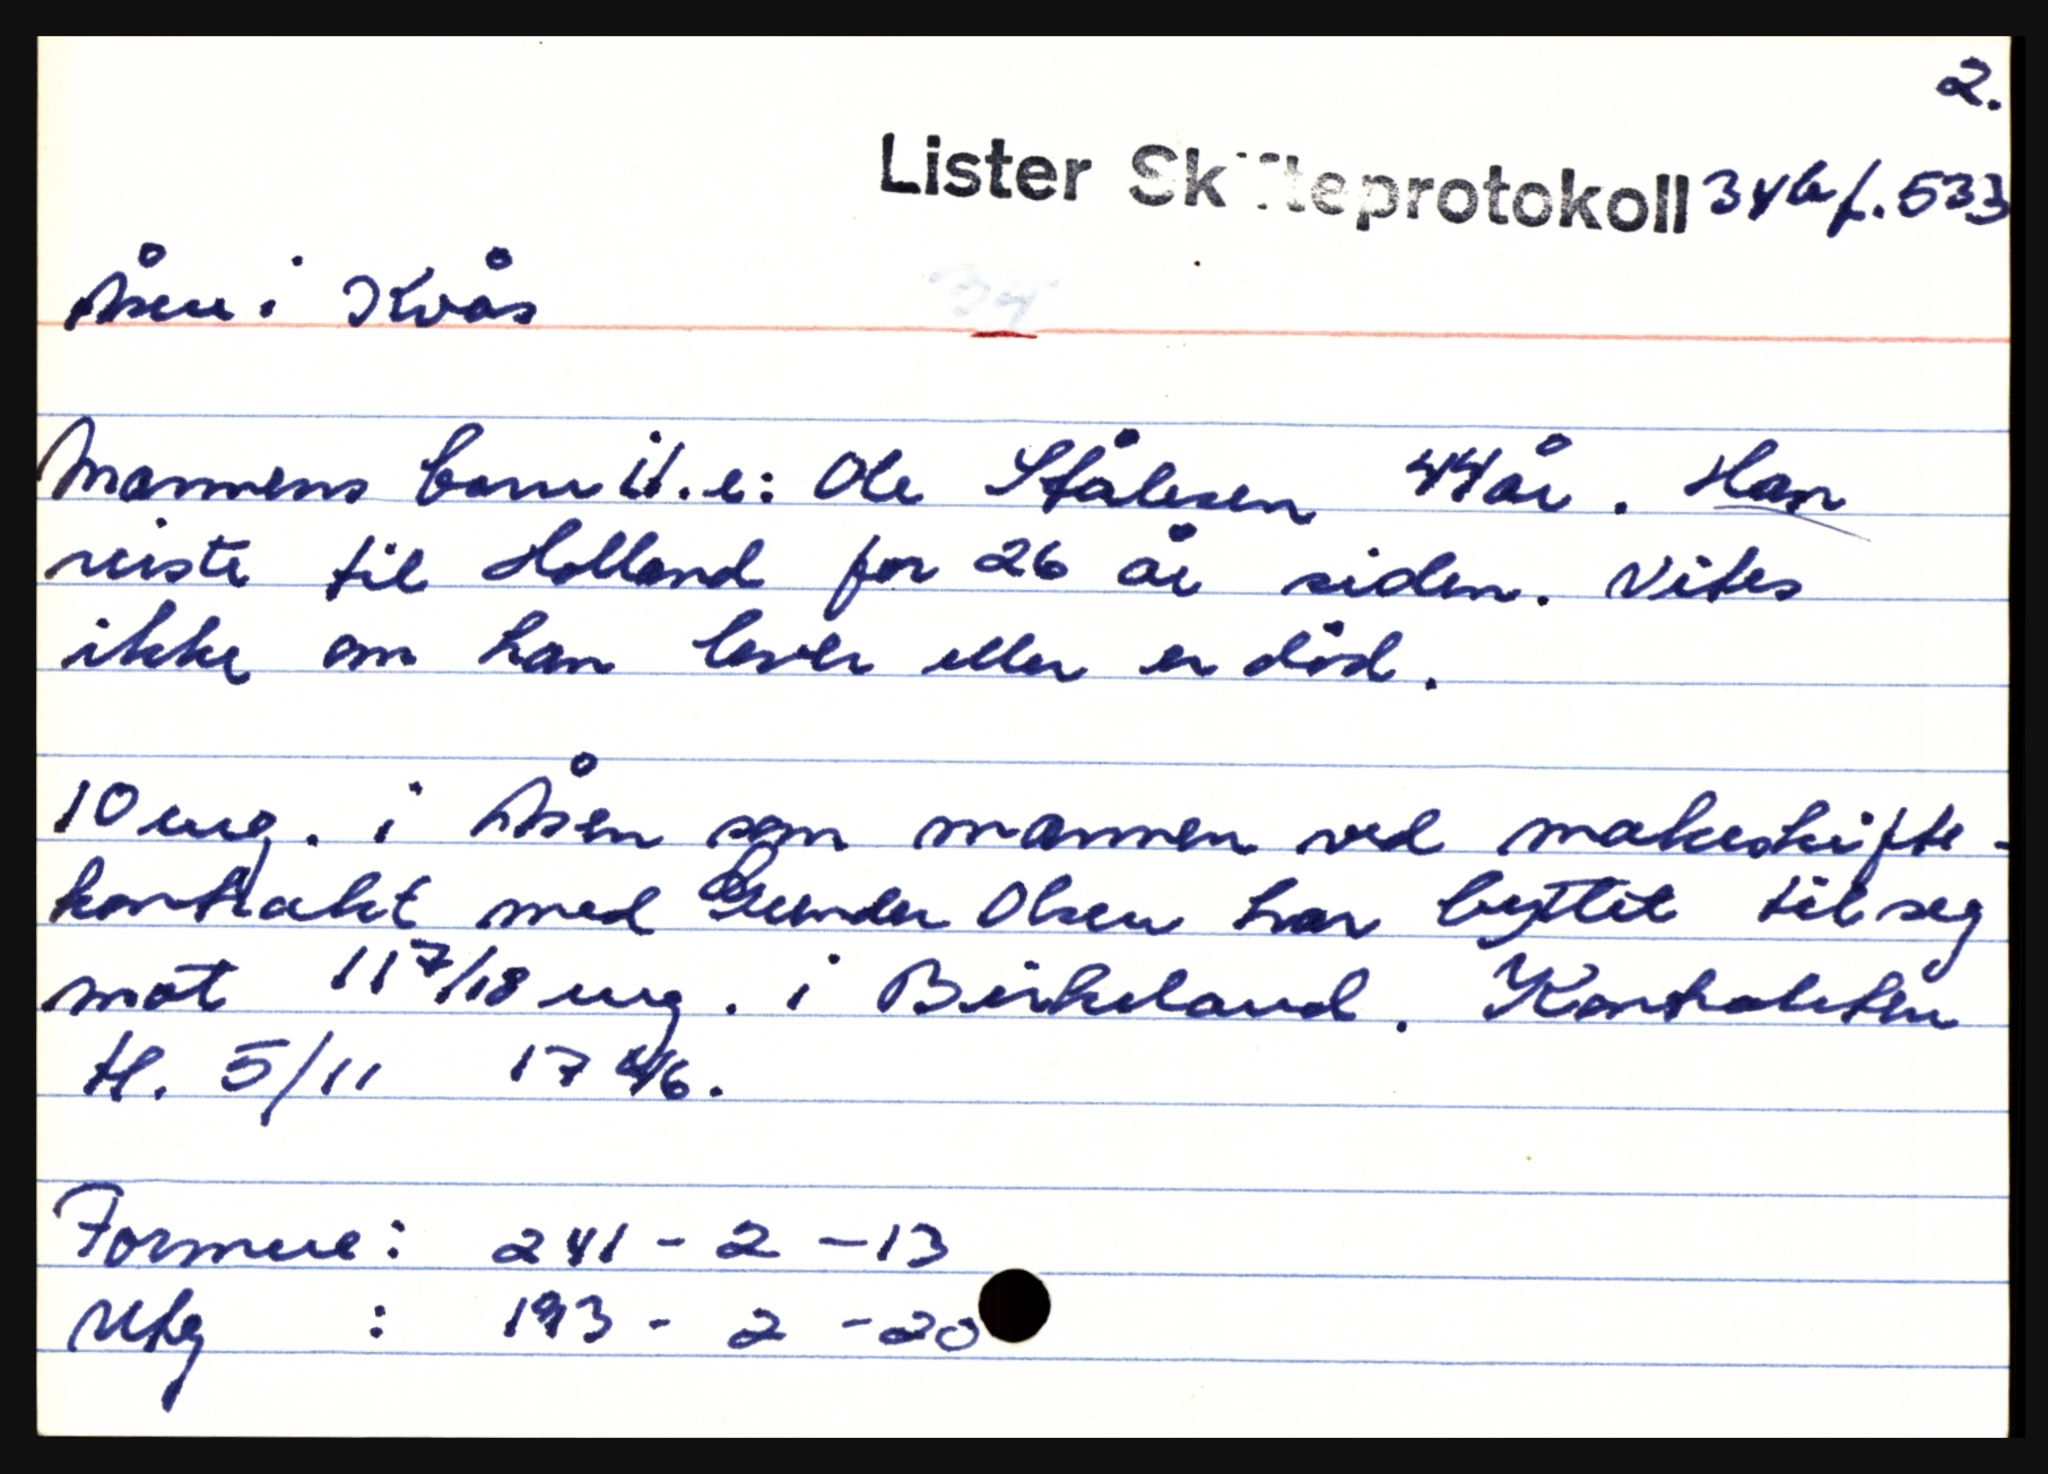 2.
Lister Skifteprotokoll 34b f. 533
Åsen i Kvås
34
Mannens barn i1.e: Ole Stålesen 44 år. Han
reiste til Holland for 26 år siden. Vites
ikke om han lever eller er död.
10 eng. i Åsen som mannen ved makeskifte-
kontrakt med Gunder Olsen har byttet til seg
mot 11 7/18 eng. i Birkeland. Kontrakten
tl. 5/11 1746.
Formue: 241 - 2 - 13
Utg : 193 - 2 - 20